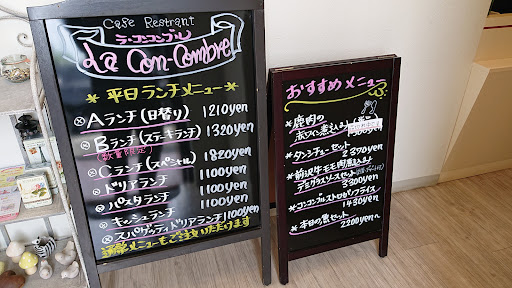 Case Restrant
ラ・コンコンブル
La Con-Combre
* 平日ランチメニュー *
Aランチ(日替り) 1210yen
Bランチ(ステーキランチ) 1320yen
(数量限定)
Cランチ(スペシャル) 1820yen
ドリアランチ 1100yen
パスタランチ 1100yen
キッシュランチ 1100yen
スパゲッティドリアランチ 1100yen
通常メニューもご注文いただけます
おすすめメニュー
* 鹿肉の
赤ワイン煮込み
* タンシチューセット
2370yen
* 前沢牛モモ肉煮込み
デミグラスソースセット
3300yen
* コンコンブルストロガノフライス
1480yen
* 本日の魚セット
2200yen~